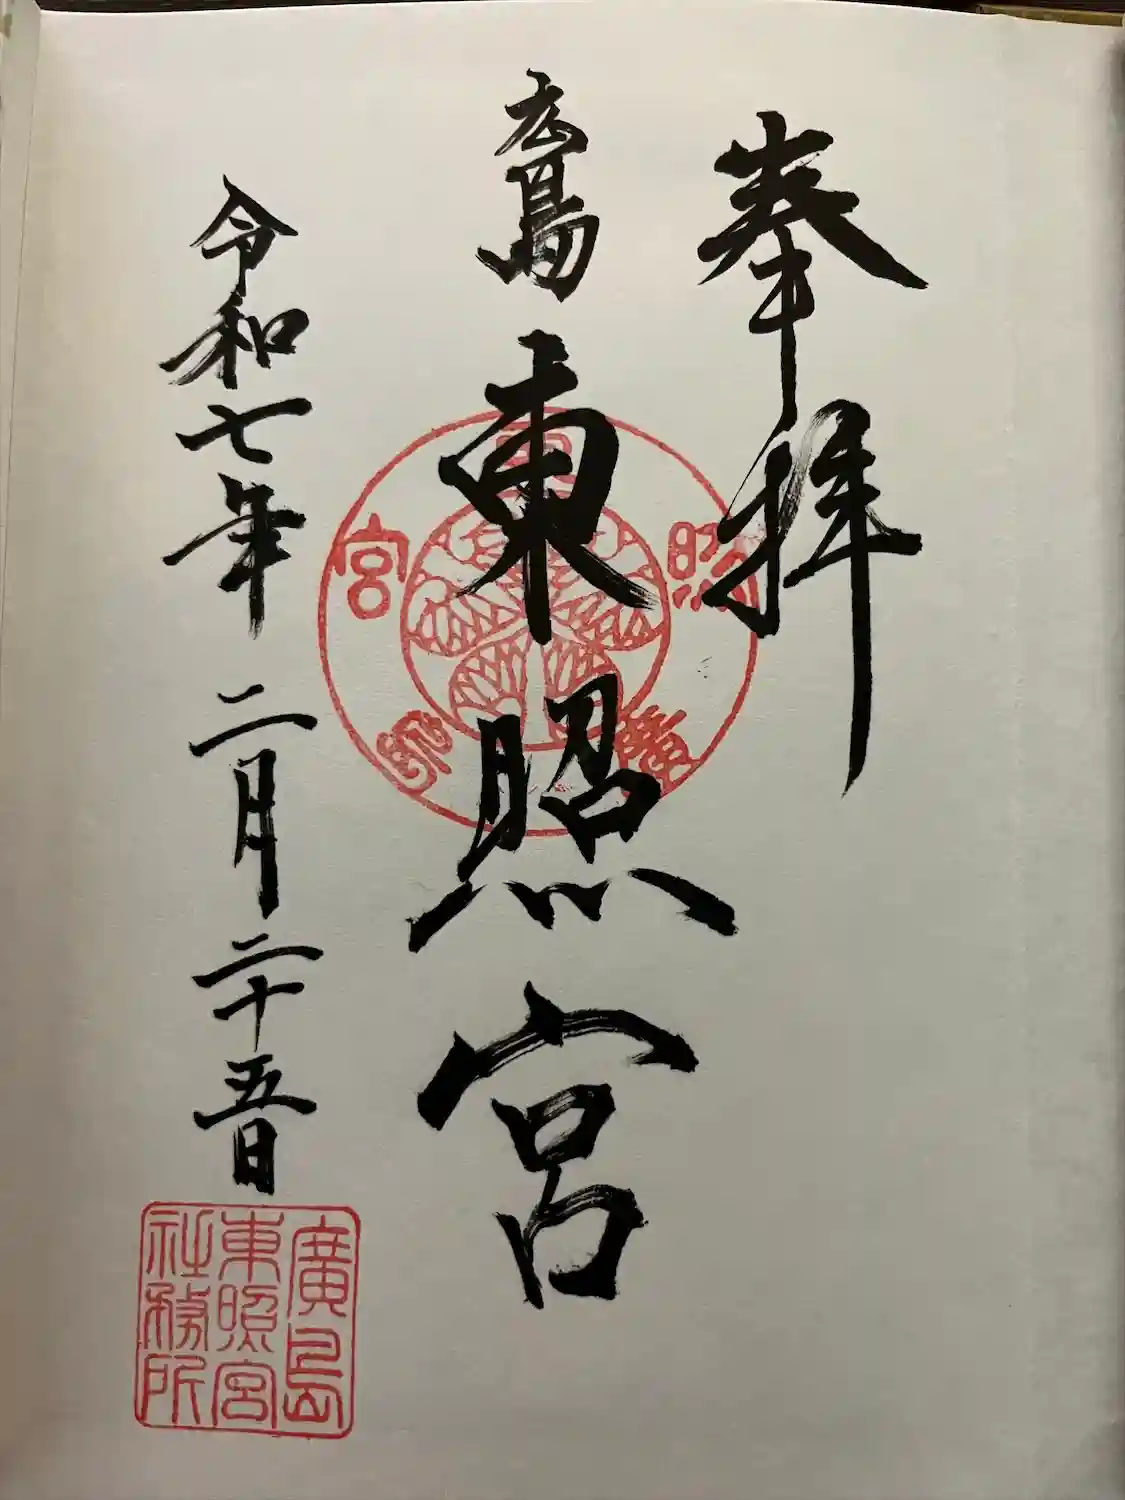 奉拝
広島
東照宮
令和七年 二月二十五日
東照宮
廣島
廣島
東照宮
社務所